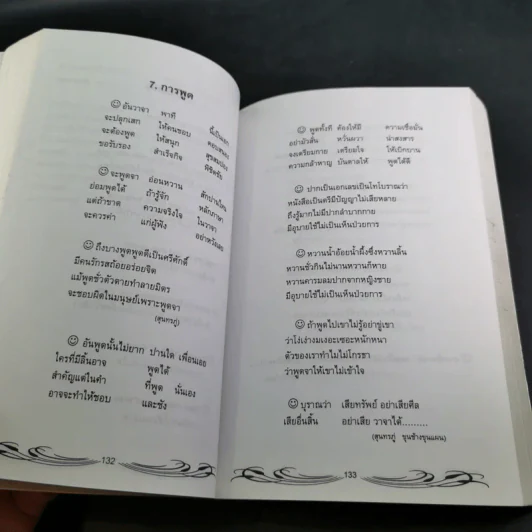 7. การพูด
☺ อันวาจา พาที นี้เป็นเอก
จะปลุกเสก ให้คนชอบ
จะต้องพูด ให้สนุก
ขอรับรอง สำเร็จกิจ
☺ จะพูดจา อ่อนหวาน สักปานไหน
ย่อมพูดได้ ถ้ารู้จัก หลักภาษา
แต่ถ้าขาด ความจริงใจ ในวาจา
จะควรค่า แก่ผู้ฟัง อย่าหวังเลย
☺ ถึงบางพูดพูดดีเป็นศรีศักดิ์
มีคนรักรสถ้อยอร่อยจิต
แม้พูดชั่วตัวตายทำลายมิตร
จะชอบผิดในมนุษย์เพราะพูดจา
(สุนทรภู่)
☺ อันพูดนั้นไม่ยาก ปานใด เพื่อนเอย
ใครที่มีลิ้นอาจ พูดได้
สำคัญแต่ในคำ ที่พูด นั่นเอง
อาจจะทำให้ชอบ และชัง
132
☺ พูดทั้งที ต้องให้มี ความเชื่อมั่น
อย่ามัวสั่น หวั่นผวา น่าสงสาร
จงเตรียมกาย เตรียมใจ ให้เบิกบาน
ความกล้าหาญ บันดาลให้ พูดได้ดี
☺ ปากเป็นเอกเลขเป็นโทโบราณว่า
หนังสือเป็นตรีมีปัญญาไม่เสียหลาย
ถึงรู้มากไม่มีปากลำบากกาย
มีอุบายใช้ไม่เป็นเห็นป่วยการ
☺ หวานน้ำอ้อยน้ำผึ้งซึ่งหวานลิ้น
หวานชั่วกินไม่นานหวานก็หาย
หวานคารมลมปากจากหญิงชาย
มีอุบายใช้ไม่เป็นเห็นป่วยการ
☺ ถ้าพูดไปเขาไม่รู้อย่าขู่เขา
ว่าโง่เง่างมเงอะเซอะหนักหนา
ตัวของเราทำไมไม่โกรธา
ว่าพูดจาให้เขาไม่เข้าใจ
☺ บุราณว่า เสียทรัพย์ อย่าเสียศีล
เสียอื่นสิ้น อย่าเสีย วาจาได้.........
(สุนทรภู่ ขุนช้างขุนแผน)
133